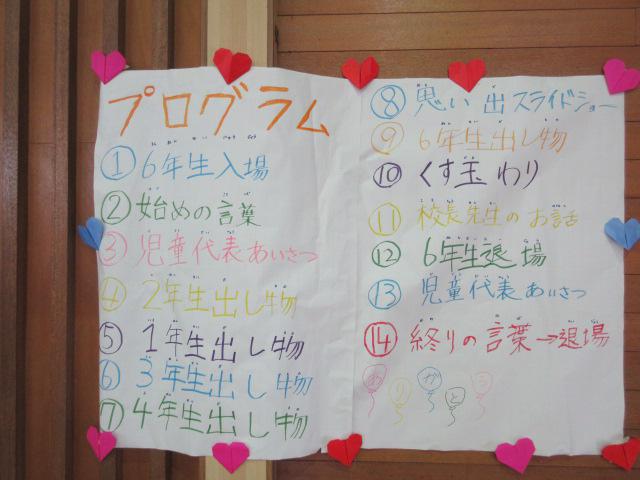 プログラム
①6年生入場
②始めの言葉
③児童代表あいさつ
④2年生出し物
⑤1年生出し物
⑥3年生出し物
⑦4年生出し物
⑧思い出スライドショー
⑨6年生出し物
⑩くす玉わり
⑪校長先生のお話
⑫6年生退場
⑬児童代表あいさつ
⑭終りの言葉→退場
ありがとう